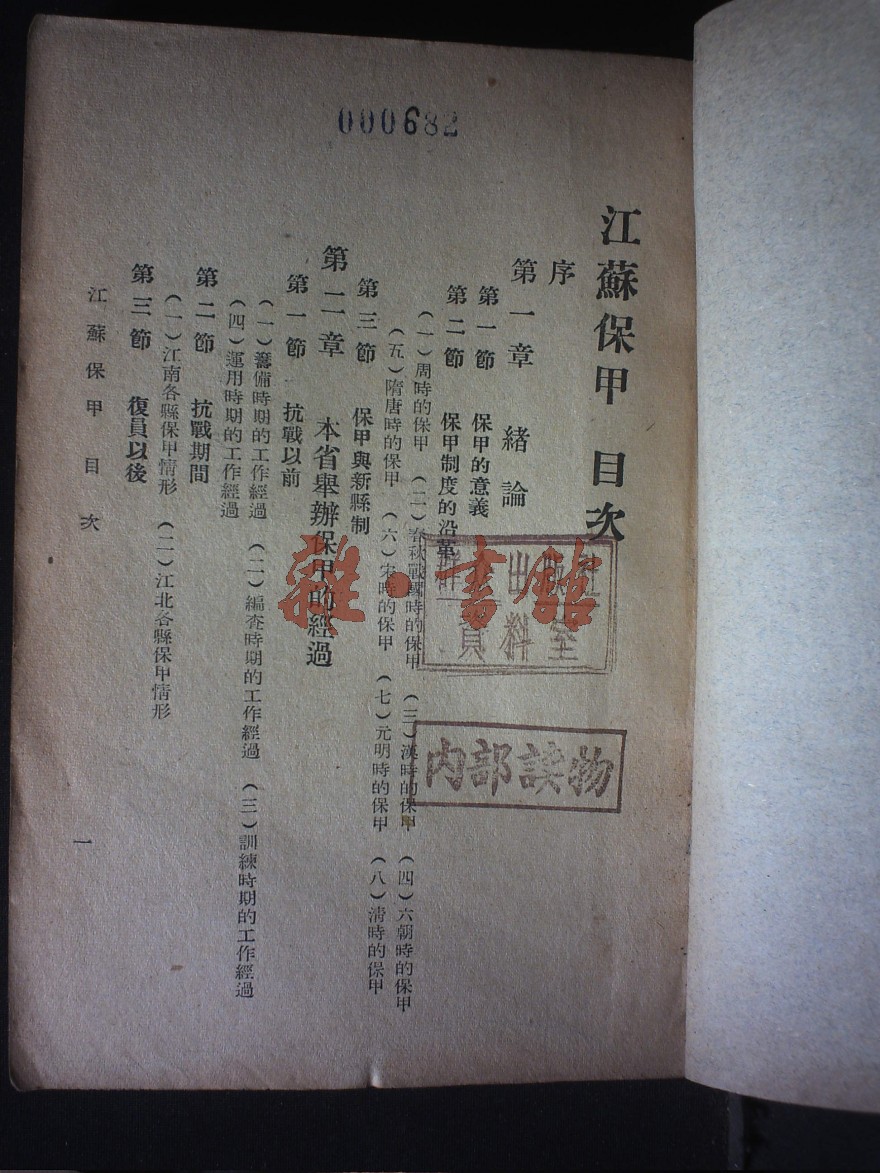 000682
江蘇保甲 目次
序
第一章 緒論
第一節 保甲的意義
第二節 保甲制度的沿革
（一）周時的保甲 （二）春秋戰國時的保甲 （三）漢時的保甲 （四）六朝時的保甲
（五）隋唐時的保甲 （六）宋時的保甲 （七）元明時的保甲 （八）清時的保甲
第三節 保甲與新縣制
第二章 本省舉辦保甲的經過
第一節 抗戰以前
（一）籌備時期的工作經過 （二）編查時期的工作經過 （三）訓練時期的工作經過
（四）運用時期的工作經過
第二節 抗戰期間
（一）江南各縣保甲情形 （二）江北各縣保甲情形
第三節 復員以後
江蘇保甲目次
一
出版社
資料室
内部读物
雜·書館